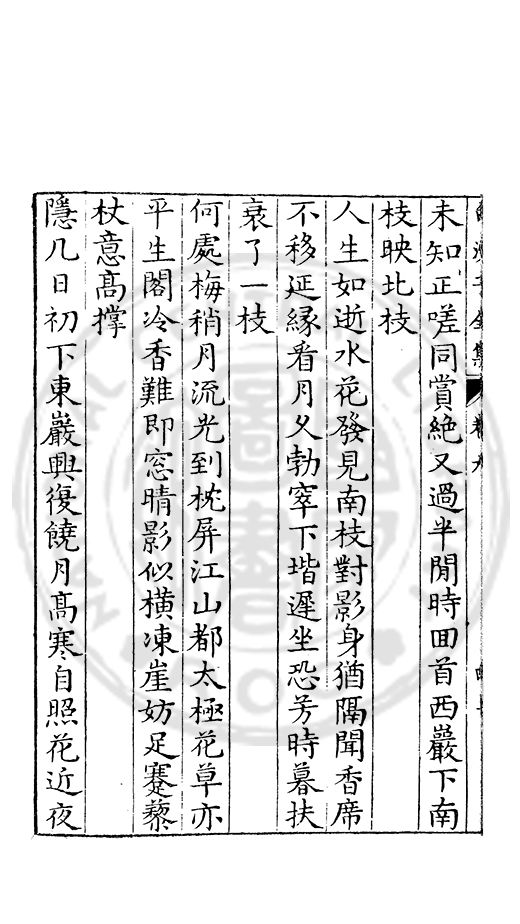 未知正嗟同賞絶又過半閒時回首西巖下南
枝映北枝
人生如逝水花發見南枝對影身猶隔聞香席
不移延縁看月久勃窣下堦遲坐恐芳時暮扶
衰了一枝
何處梅稍月流光到枕屏江山都太極花草亦
平生閣冷香難即窓晴影似横凍崖妨足蹇藜
杖意髙撑
隱几日初下東巖興復饒月髙寒自照花近夜